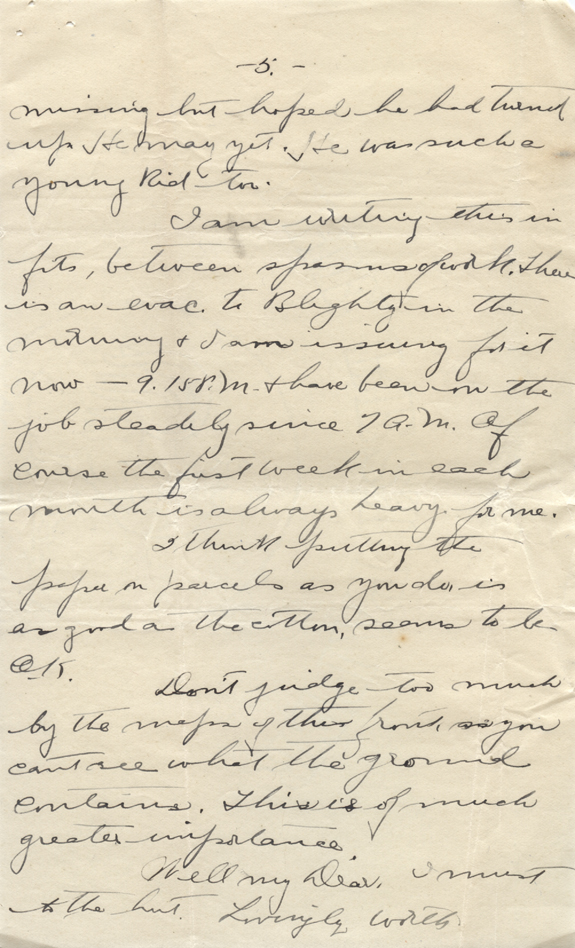 -5.-
missing but hoped he had turned
up. He may yet. He was such a
young kid too.
I am writing this in
fits, between spasms of work. There
is an evac. to Blighty in the
morning & I am issuing for it
now – 9.15 P.M. & have been on the
job steadily since 7 A.M. Of
course the first week in each
month is always heavy for me.
I think putting the
paper on parcels as you do is
as good as the cotton, seems to be
O.K.
Don't judge too much
by the maps of this front, as you
cant see what the ground
contains. This is of much
greater importance
Well my Dear, I must
to the hut. Lovingly Worth